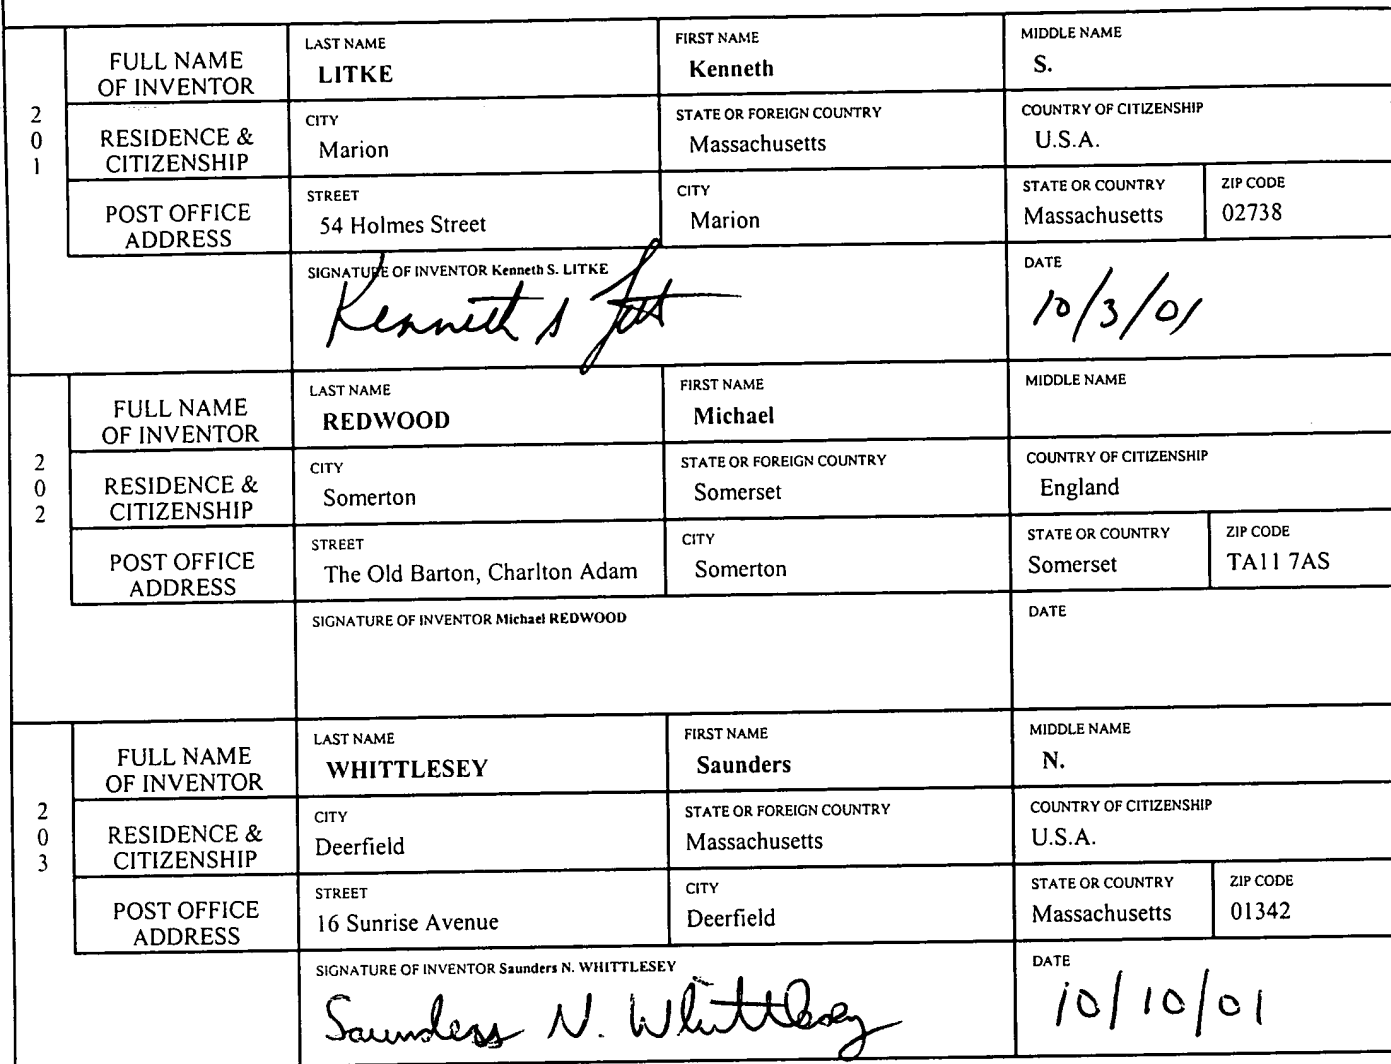 201
FULL NAME OF INVENTOR
LAST NAME
LITKE
FIRST NAME
Kenneth
MIDDLE NAME
S.
RESIDENCE & CITIZENSHIP
CITY
Marion
STATE OR FOREIGN COUNTRY
Massachusetts
COUNTRY OF CITIZENSHIP
U.S.A.
POST OFFICE ADDRESS
STREET
54 Holmes Street
CITY
Marion
STATE OR COUNTRY
Massachusetts
ZIP CODE
02738
SIGNATURE OF INVENTOR Kenneth S. LITKE
Kenneth S
DATE
10/3/01
202
FULL NAME OF INVENTOR
LAST NAME
REDWOOD
FIRST NAME
Michael
MIDDLE NAME
RESIDENCE & CITIZENSHIP
CITY
Somerton
STATE OR FOREIGN COUNTRY
Somerset
COUNTRY OF CITIZENSHIP
England
POST OFFICE ADDRESS
STREET
The Old Barton, Charlton Adam
CITY
Somerton
STATE OR COUNTRY
Somerset
ZIP CODE
TA11 7AS
SIGNATURE OF INVENTOR Michael REDWOOD
DATE
203
FULL NAME OF INVENTOR
LAST NAME
WHITTLESEY
FIRST NAME
Saunders
MIDDLE NAME
N.
RESIDENCE & CITIZENSHIP
CITY
Deerfield
STATE OR FOREIGN COUNTRY
Massachusetts
COUNTRY OF CITIZENSHIP
U.S.A.
POST OFFICE ADDRESS
STREET
16 Sunrise Avenue
CITY
Deerfield
STATE OR COUNTRY
Massachusetts
ZIP CODE
01342
SIGNATURE OF INVENTOR Saunders N. WHITTLESEY
Saunders N. Whittlesey
DATE
10/10/01